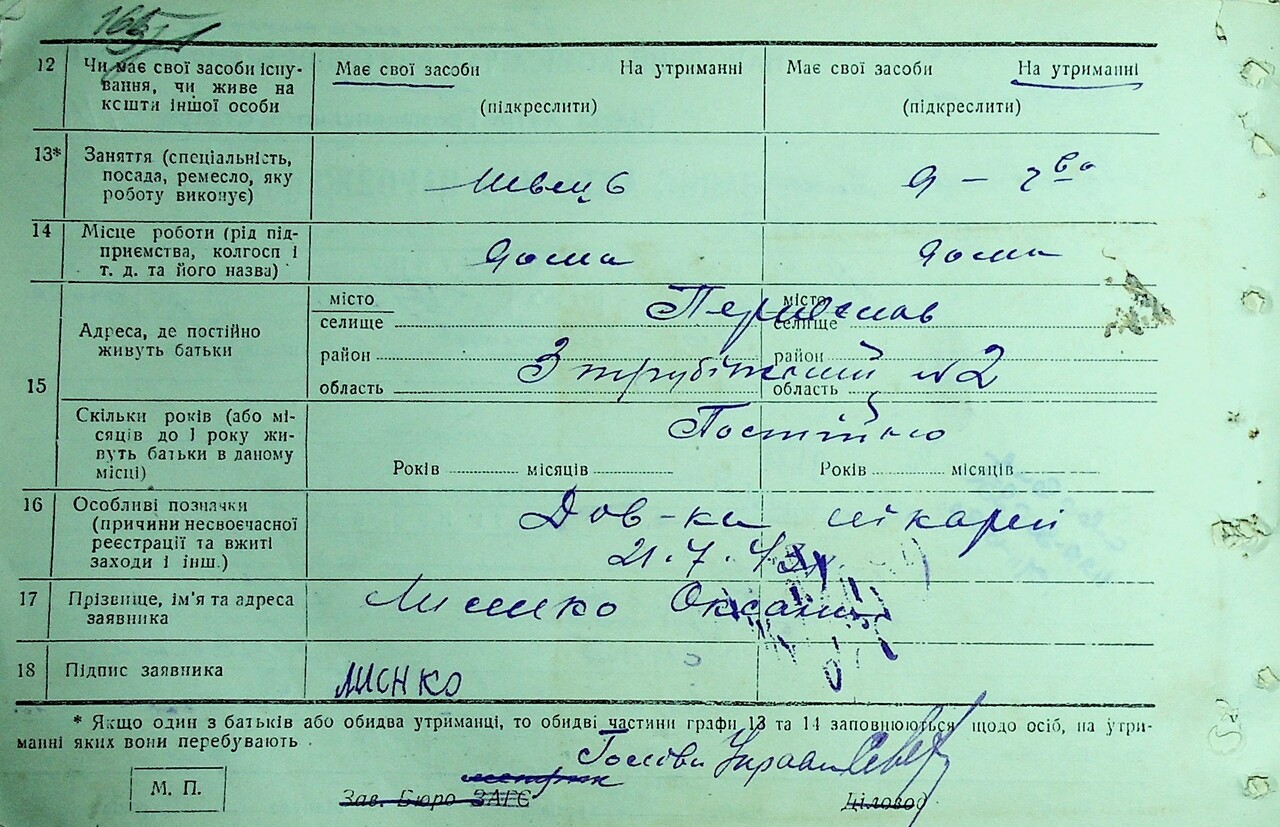 166
12 Чи має свої засоби існу-
вання, чи живе на
кошти іншої особи
Має свої засоби На утриманні Має свої засоби На утриманні
(підкреслити) (підкреслити)
13* Заняття (спеціальність,
посада, ремесло, яку
роботу виконує)
Швець Д – г во
14 Місце роботи (рід під-
приємства, колгосп і
т. д. та його назва)
дома дома
15 Адреса, де постійно
живуть батьки
місто місто
селище селище
Переяслав
район район
З трубіжський №2
область область
Скільки років (або мі-
сяців до 1 року жи-
вуть батьки в даному
місці)
Постійно
Років місяців Років місяців
16 Особливі позначки
(причини несвоєчасної
реєстрації та вжиті
заходи і інш.)
Дов-ка лікарей
21.7.43
17 Прізвище, ім'я та адреса
заявника
Лисенко Оксана
18 Підпис заявника
ЛИСНКО
* Якщо один з батьків або обидва утриманці, то обидві частини графи 13 та 14 заповнюються щодо осіб, на утри-
манні яких вони перебувають
Голова Управи
М. П.
Зав. Бюро ЗАГС Діловод